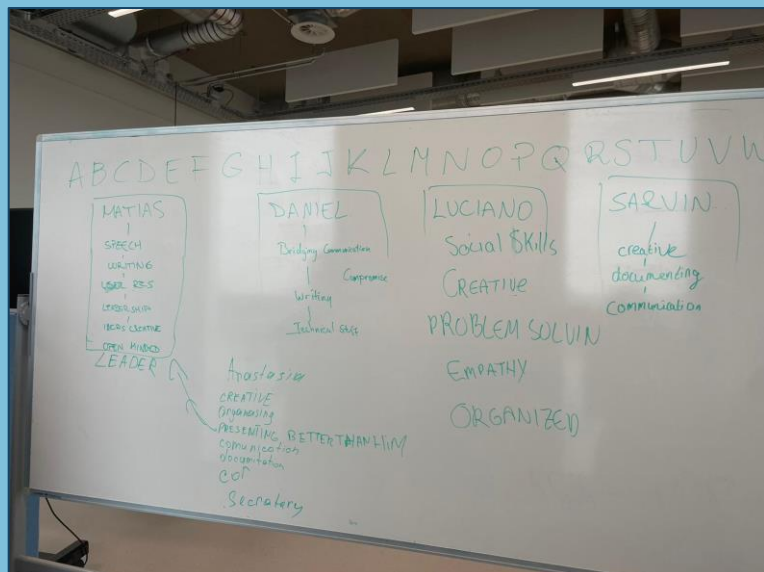 A B C D E F G H I J K L M N O P Q R S T U V W
MATIAS
SPEECH
WRITING
USER RES
LEADERSHIP
IDEAS CREATIVE
OPEN MINDED
LEADER
DANIEL
Bridging Communication
Compromise
Writing
Technical
LUCIANO
Social Skills
CREATIVE
PROBLEM SOLVIN
EMPATHY
ORGANIZED
SARVIN
creative
documenting
communication
Anastasia
CREATIVE
Organising
PRESENTING BETTER THAN HIM
comunication
Secretery